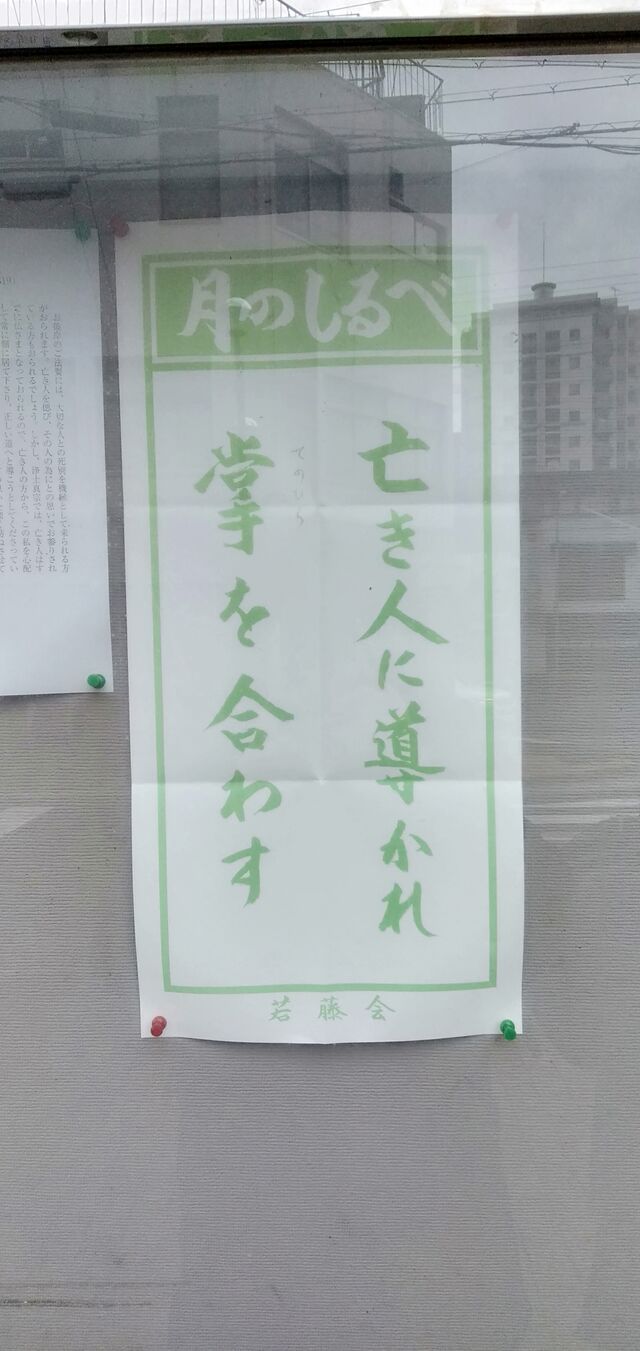 月のしるべ
亡き人に導かれ
てのひら
掌を合わす
若藤会
大切な人との死別を機縁として来られる方
がおられます。亡き人を偲び、その人の為にとの思いでお参りされ
ている方もおられるでしょう。しかし、浄土真宗では、亡き人はす
でに仏さまとなっておられるので、亡き人の方から、この私を心配
して常に側に居て下さり、正しい道へと導こうとしてくださってい